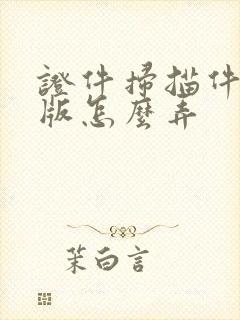 證件掃描件
版怎麼弄
茉白言